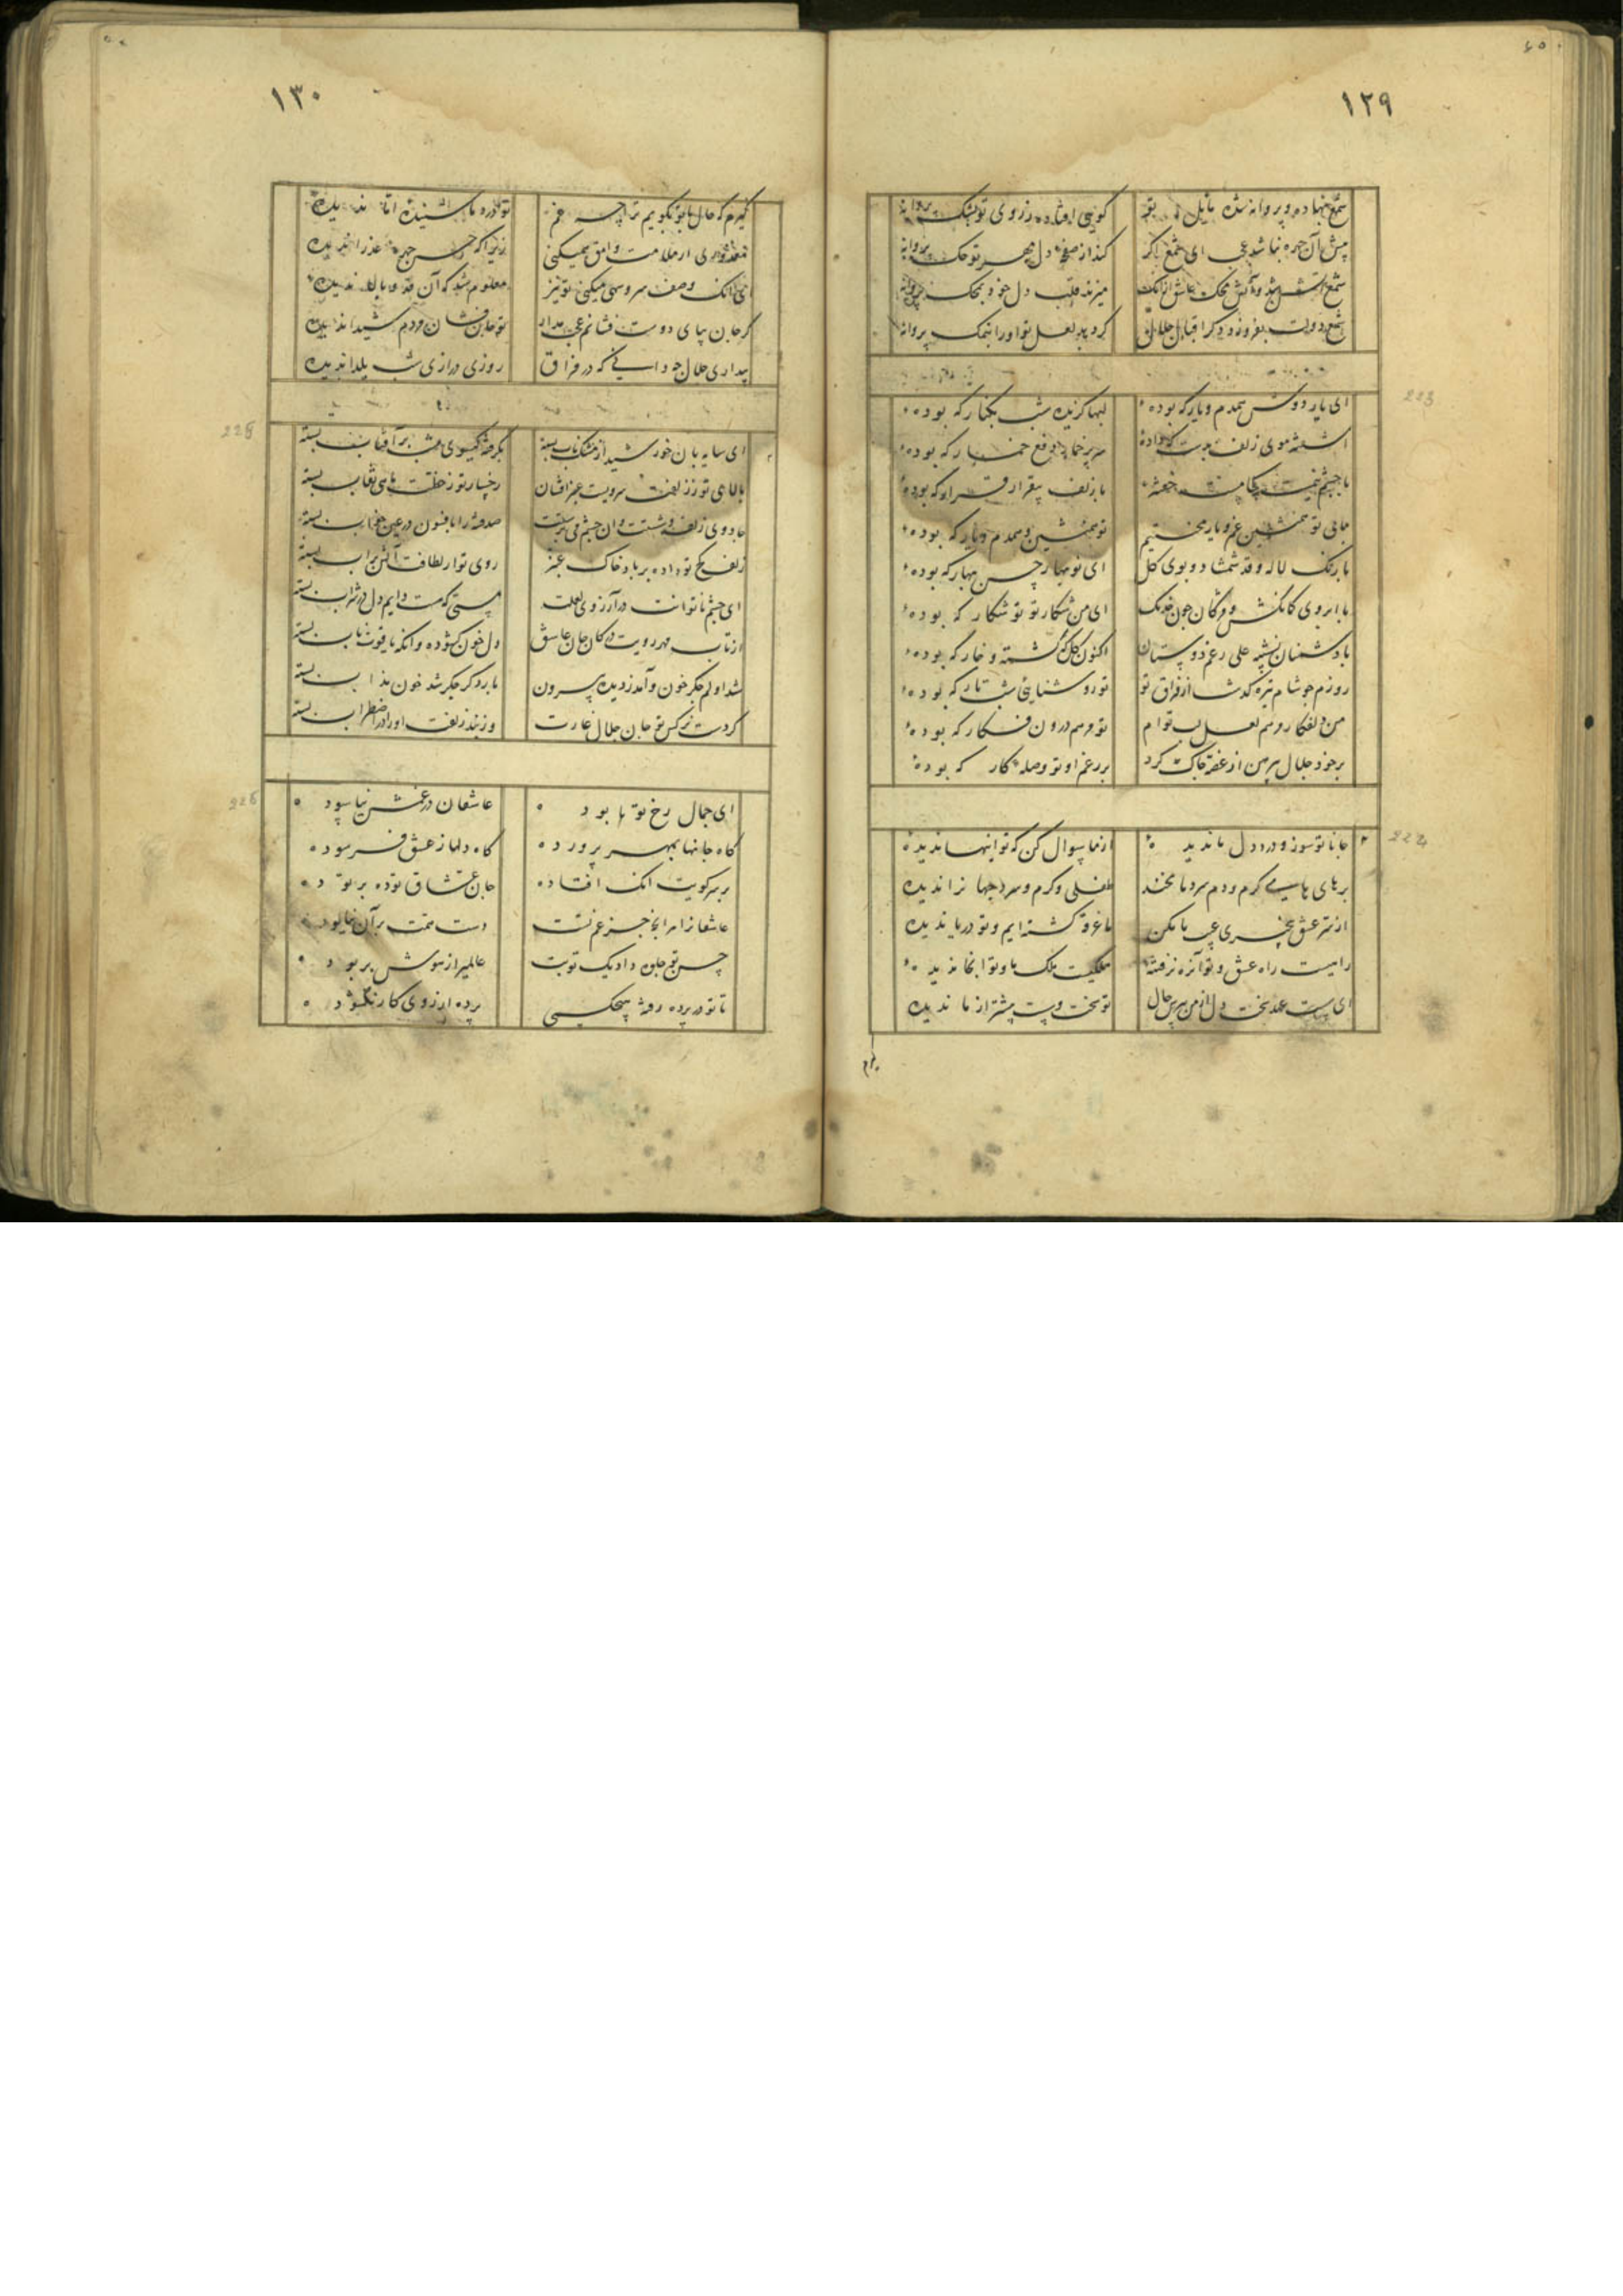 ١٢٩
شمع نهاده و پروانه شده مایل تو گویی افتاده ز روی تو بشک پروانه
پیش آن چهره نباشد عجب ای شمع اگر کند از صفحه دل مهر تو حک پروانه
شمع آتش شد و آتش محک عاشق از آنک میزند قلب دل خود بمحک پروانه
شمع دولت بفروزد دگر اقبال جلال گر دهد لعل تو او را بنمک پروانه
223
ای یار دوش همدم و یار که بوده لبها گزیده شب بکنار که بوده
آشفته موی زلف بدست که داده سرپرخمار دفع خمار که بوده
با چشم نیم مست بکام که خفته با زلف بیقرار قرار که بوده
مابی تو همنشین غم و یار محنتیم تو همنشین و همدم و یار که بوده
با رنگ لاله و قد شمشاد و بوی گل ای نوبهار حسن بهار که بوده
با ابروی کمانکش و مژگان چون خدنگ ای من شکار تو تو شکار که بوده
با دشمنان نشسته علی رغم دوستان اکنون گل که گشته و خار که بوده
روزم چو شام تیره گذشت از فراق تو تو روشنایی شب تار که بوده
من دلفکار و مرهم لعل لب توام تو مرهم درون فکار که بوده
بر خود جلال پیرهن از غصه چاک کرد بر رغم او تو وصله کار که بوده
224
جانا تو سوز و درد دل ما ندیده از ما سوال کن که تو اینها ندیده
بر های های گرم و دم سرد ما مخند طفلی و گرم و سرد جهان را ندیده
از سر عشق بیخبری عیب ما مکن ما غرقه گشته ایم و تو دریا ندیده
راهیست راه عشق و تو آن ره نرفته ملکیست ملک ما و تو آنجا ندیده
ای سست عهد سخت دل از من مپرس حال تو سخت و سست پیشتر از ما ندیده
١٣٠
گیرم که حال با تو بگویم ترا چه غم تو درد ما شنیده اما ندیده
معذوری ار ملامت وامق همیکنی زیرا که حسن چهره عذرا ندیده
ای آنک وصف سرو سهی میکنی تو نیز معلوم شد که آن قد و بالا ندیده
گر جان بپای دوست فشانم عجب مدار تو جان فشان مردم شیدا ندیده
بیداری جلال چه دانی که در فراق روزی درازی شب یلدا ندیده
225
ای سایه بان خورشید از مشک ناب بسته بگرفته گیسوی شب بر آفتاب بسته
بالای تو ز زلفت سرویست عنبرافشان رخسار تو ز خطت نقاب بسته
جادوی زلف و شستت وان چشم می پرستت صد فتنه را بافسون در عین خواب بسته
زلف کج تو داده بر باد خاک عنبر روی تو از لطافت آتش بر آب بسته
ای چشم ناتوانت در آرزوی لعلت مستی که مست دایم دل در شراب بسته
از تاب مهر رویت در کان جان عاشق دل خون گشوده وانگه یاقوت ناب بسته
شد اولم جگر خون وآمد ز دیده بیرون
کردست نرگس تو جان جلال غارت وز بند زلفت او را در اضطراب بسته
226
ای جمال رخ تو تا بود عاشقان در غمش نیاسوده
گاه جانها بمهر پرورده گاه دلها ز عشق فرسوده
بر سر کویت آنک افتاده جان عشاق توده بر توده
عاشقانرا مرا بجز غم تست دست تهمت بر آن نیالوده
حسن تو جلوه داد یک نوبت عالمی را ز هوش بربوده
تا تو در پرده رفته هیچکسی پرده از روی کار نگشوده